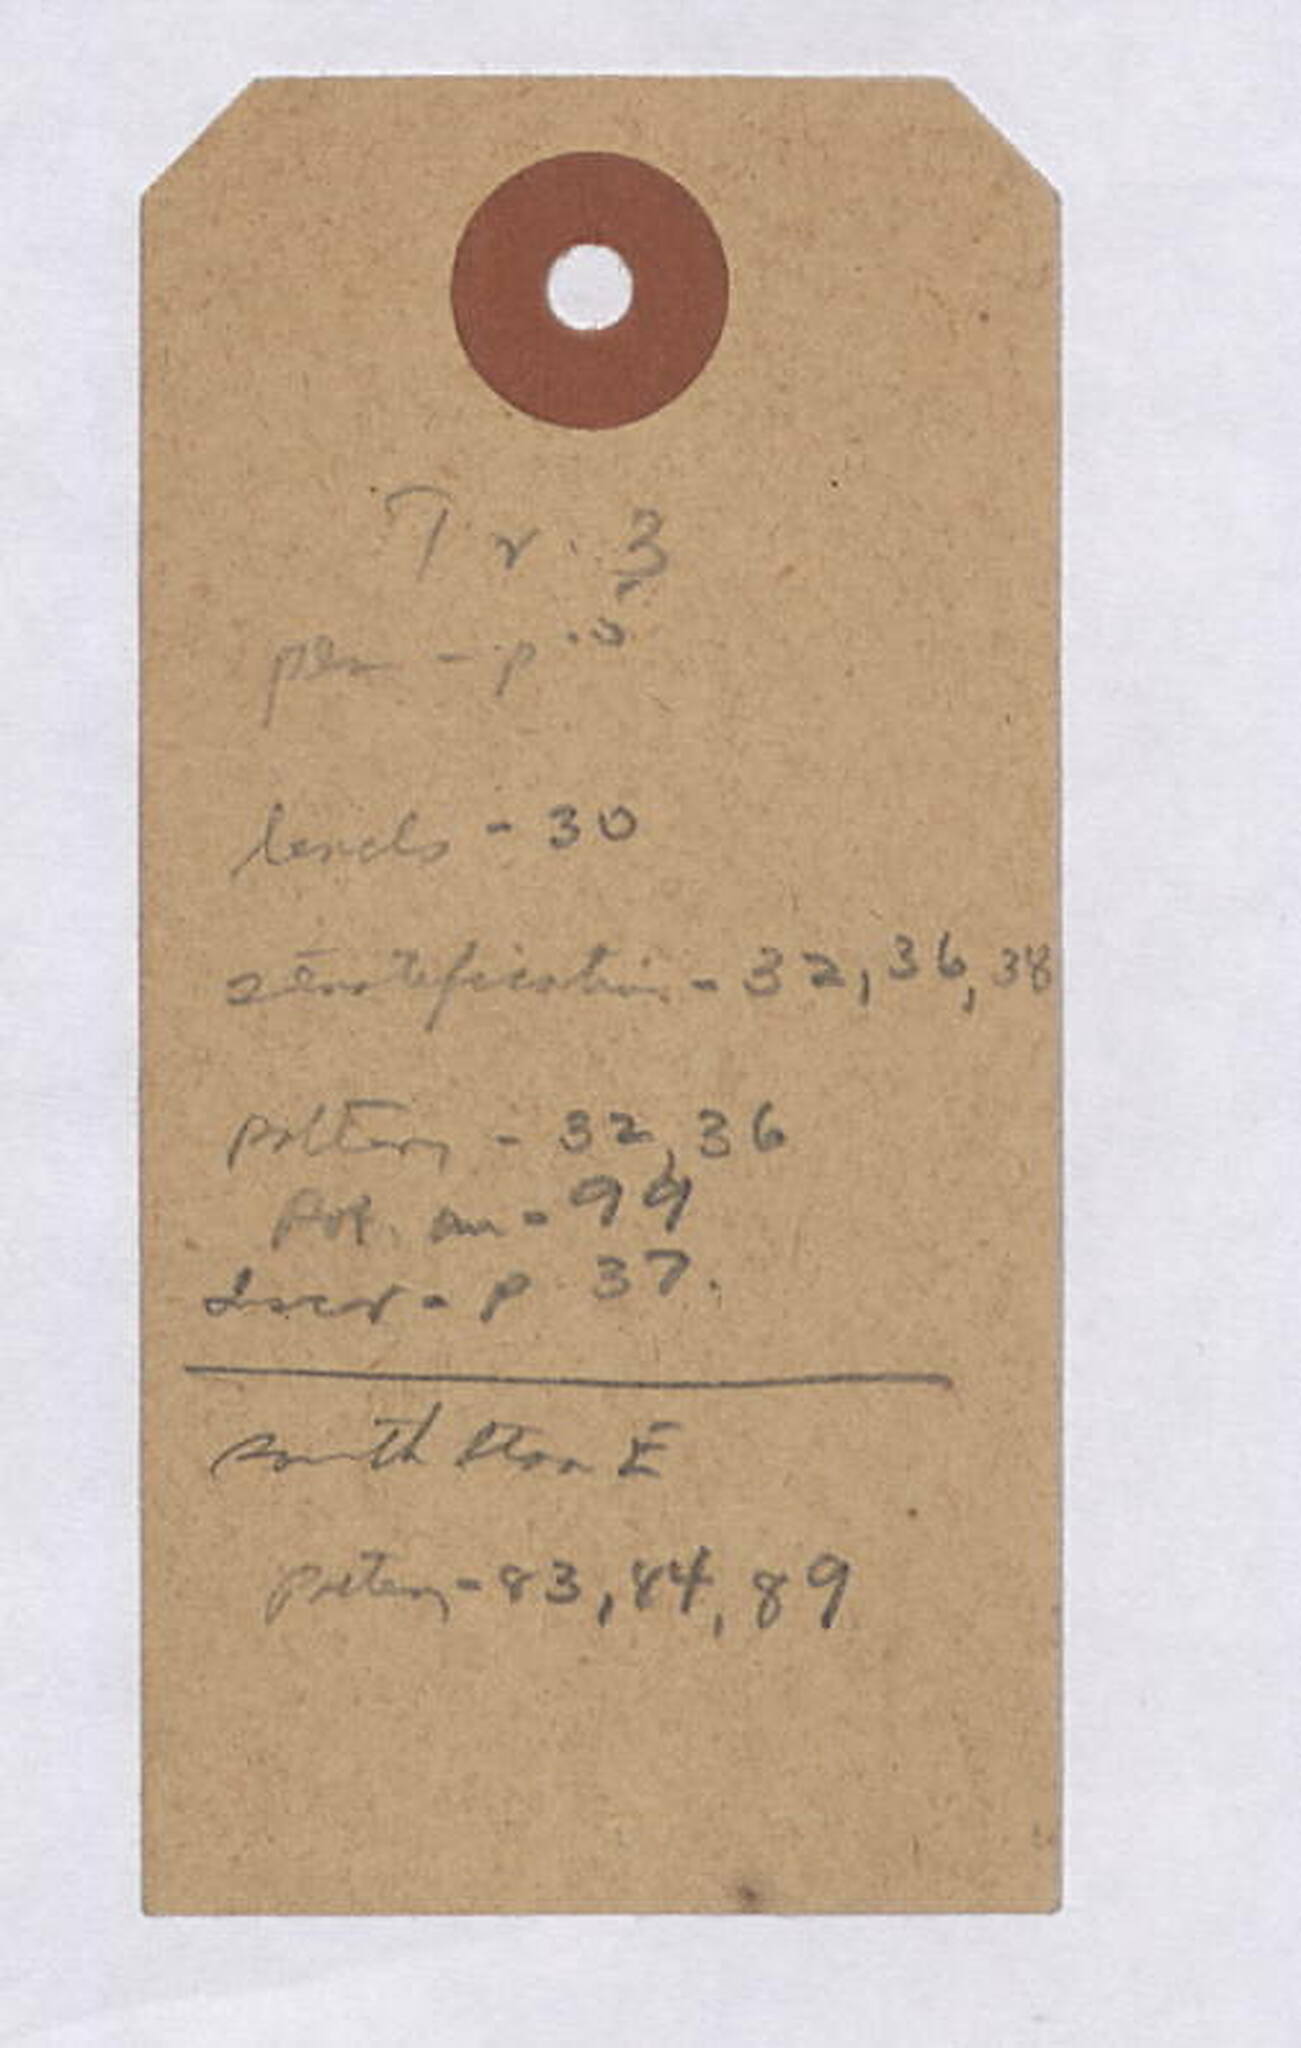 Tr. 3
plan - p
levels - 30
stratification - 32, 36, 38
pottery - 32, 36
Pot. - 94
Inscr - p 37.
south Stoa E
pottery - 83, 84, 89